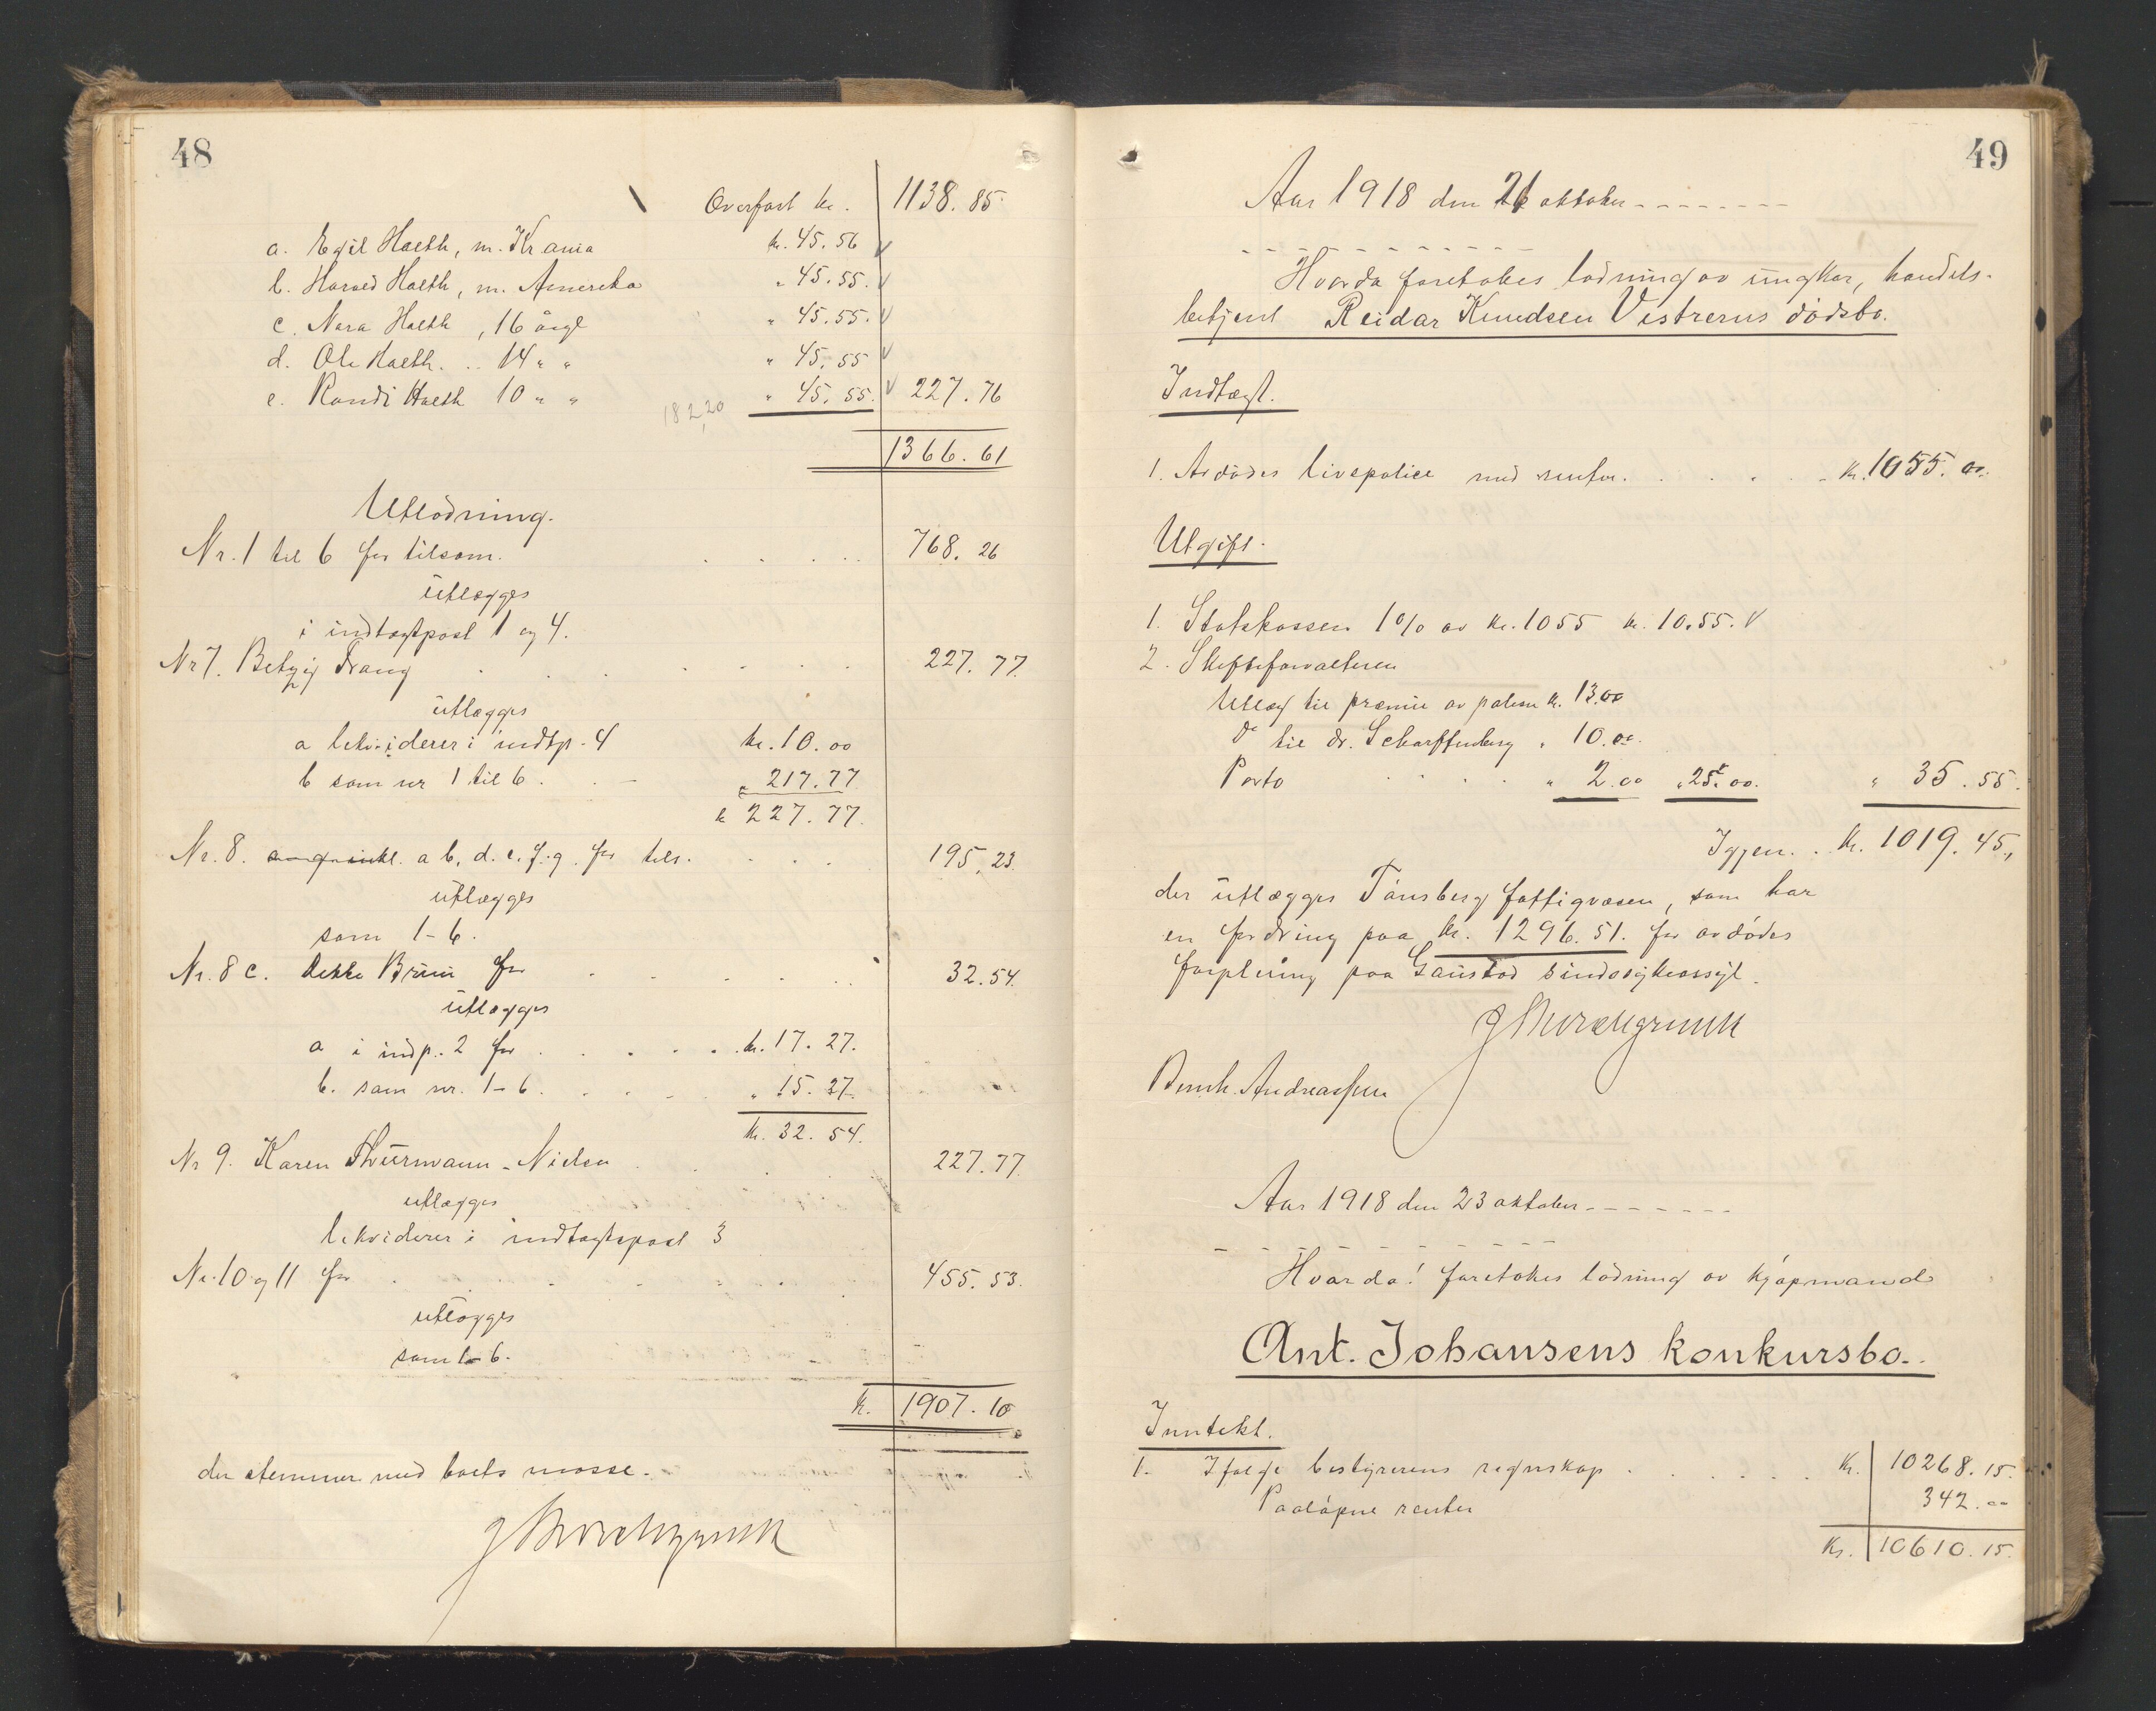 48
Overført kr. 1138.85
a. Egil Holth, m. Kr.ania kr. 45.56 v
b. Harald Holth, m. Amerika " 45.55. v
c. Nora Holth, 16 årgl " 45.55. v
d. Ole Holth. .. 14 " " " 45.55 v
e. Randi Holth 10 " " 182,20 " 45.55. v 227.76
1366.61
Utlodning.
Nr. 1 til 6 for tilsam. 768.26
utlægges
i indtægtpost 1 og 4.
Nr 7. Betzy Drang 227.77.
utlægges
a likviderer i indtp. 4 kr. 10.00
b som nr 1 til 6. " 217.77
k 227.77.
Nr. 8. a b, d. e. f. g. for tils. 195.23.
utlægges
som 1-6.
Nr. 8 c. Bruun for 32.54.
utlægges
a i indp. 2 for kr. 17.27.
b. som nr. 1-6. " 15.27.
kr. 32.54.
Nr 9. Karen Thurmann-Nielsen 227.77.
utlægges
likviderer i indtægtspost 3
Nr. 10 og 11 for 455.53.
utlægges
som 1-6.
k. 1907.10
der stemmer med boets masse.
49
Aar 1918 den 21 oktober
Hvorda foretokes lodning av ungkar, handels-
betjent Reidar Knudsen Vestrerns dødsbo.
Indtægt.
1. Avdødes livspolice med renter. kr. 1055.00.
Utgift.
1. Statskassen 1% av kr. 1055 kr. 10.55. v
2. Skifteforvalteren
Utlæg til præmie av polisen kr. 13.00
do til dr. Scharffenberg " 10.00.
Porto " 2.00 " 25.00. " 35.55.
Igjen. kr. 1019.45,
der utlægges Tønsberg fattigvæsen, som har
en fordring paa kr. 1296.51. for avdødes
forpleining paa Gaustad sindssykeasyl.
Bernh. Andreassen
Aar 1918 den 23 oktober
Hvorda! foretokes lodning av kjøpmand
Ant. Johansens konkursbo.
Inntekt.
1. Ifølge bestyrerens regnskap kr. 10268.15.
Paaløpne renter 342.00
Kr. 10610.15.